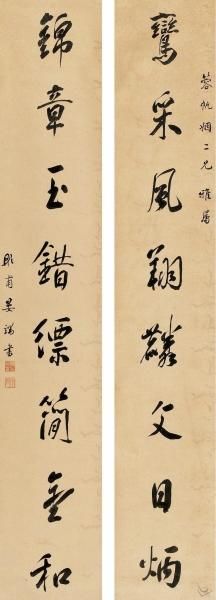 蓉帆姻二兄雅屬
鸞采風翔麟文日炳
錦章玉錯縹簡金和
彤甫晏端書